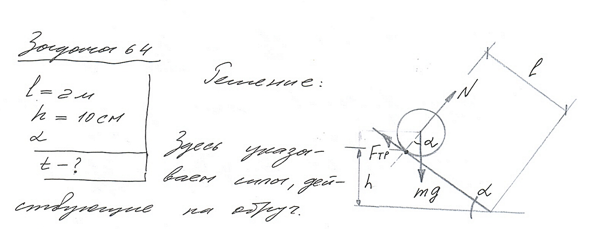 Задача 64
l = 2 м
h = 10 см
α
t - ?
Решение:
Здесь указы-
ваем силы, дей-
ствующие на обруч.
N
l
α
Fтр
h
mg
α